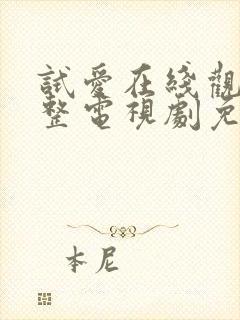 試愛在綫觀
整電視劇免
本尼